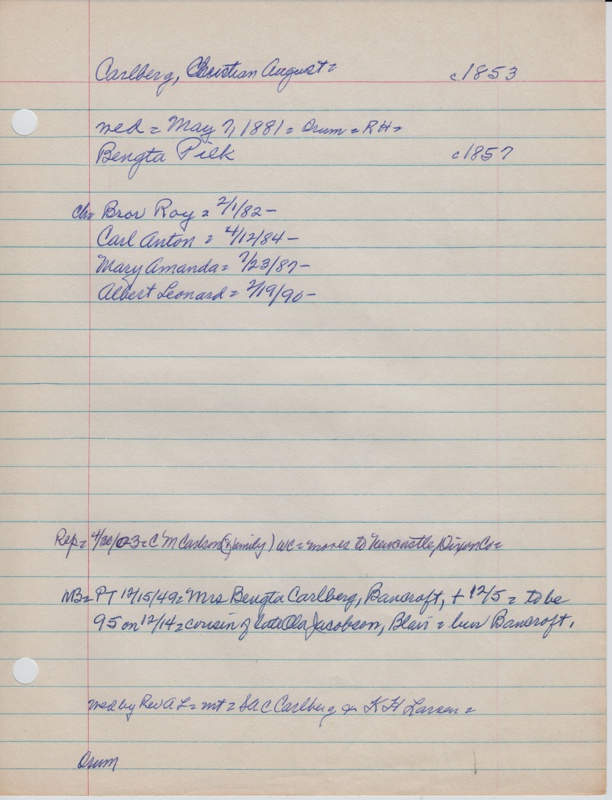 Carlberg, Christian August = c1853
med = May 7, 1881 = Orum = RH =
Bengta Pilk c1857
Chr Bror Roy = 2/1/82 -
Carl Anton = 4/12/84 -
Mary Amanda = 7/23/87 -
Albert Leonard = 2/19/90 -
Rep = 4/20/03 = C M Carlson (& family) WC = moves to Newcastle, Dixon Co =
NB = PT 12/15/49 = Mrs Bengta Carlberg, Bancroft, + 12/5 = to be
95 on 12/14 = cousin of late Ola Jacobson, Blair = bur Bancroft.
med by Rev A L = wt = SAC Carlberg & K H Larsen =
Orum